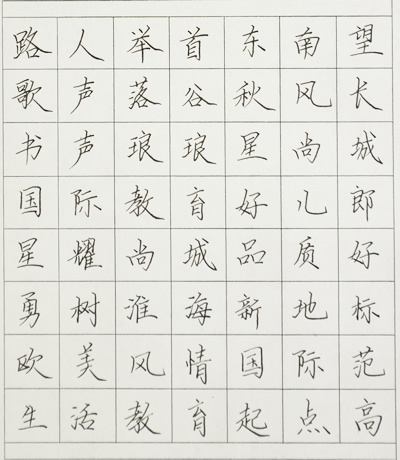 路人举首东南望
歌声落谷秋风长
书声琅琅星尚城
国际教育好儿郎
星耀尚城品质好
勇树淮海新地标
欧美风情国际范
生活教育起点高